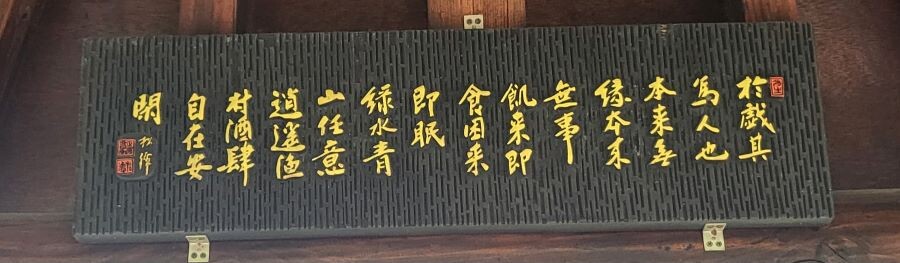 於戲其
為人也
本来無
緣本来
無事
飢来即
食困来
即眠
綠水青
山任意
逍遥漁
村酒肆
自在安
閑